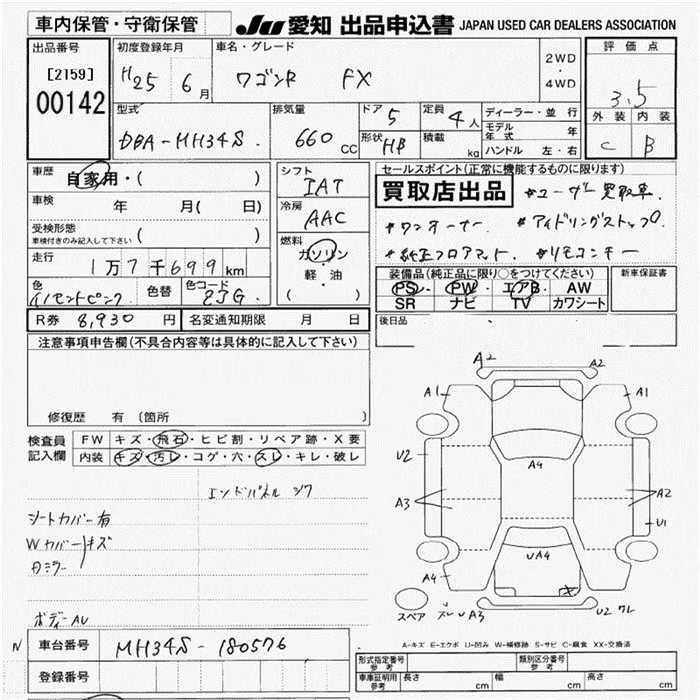 車内保管・守衛保管
JU 愛知 出品申込書 JAPAN USED CAR DEALERS ASSOCIATION
出品番号
[2159]
00142
初度登録年月
H25 6月
車名・グレード
ワゴンR FX
2WD
・
4WD
評価点
3.5
外装 内装
C B
型式
DBA-MH34S.
排気量
660 cc
ドア 5
形状 HB
定員 4人
積載 kg
ディーラー・並行
モデル年式 年
ハンドル 左・右
車歴
自家用・( )
車検 年 月( 日)
受検形態
車検付きのみ記入して下さい ( )
走行
1万7千699km
色 イノセントピンク 色替 色コード ZJG.
シフト
IAT
冷房
AAC
燃料
ガソリン
・
軽・油
( )
セールスポイント(正常に機能するものに限ります)
買取店出品 *ユーザー買取車.
*ワンオーナー *アイドリングストップ
*純正フロアマット. *リモコンキー
装備品(純正品に限り○をつけてください)
PS・ PW・ エアB・ AW
SR ナビ TV カワシート
新車保証書
後日品
R券 8,930 円
名変通知期限 月 日
注意事項申告欄(不具合内容等は具体的に記入して下さい)
修復歴 有 (箇所 )
検査員記入欄
FW キズ・飛石・ヒビ割・リペア跡・X要
内装 キズ・汚レ・コゲ・穴・スレ・キレ・破レ
エンドパネル
シートカバー有
Wカバーキズ
ボディーAU
A2 A2
A1 A1
U2
A4
A3 A2
U1
UA4
A4
スペア A3 U2
A-キズ E-エクボ U-凹み W-補修跡 S-サビ C-腐食 XX-交換済
N 車台番号 MH34S-180576
登録番号
形式指定番号 参考
類別区分番号 参考
車庫証明用 参考 長さ cm 幅 cm 高さ cm